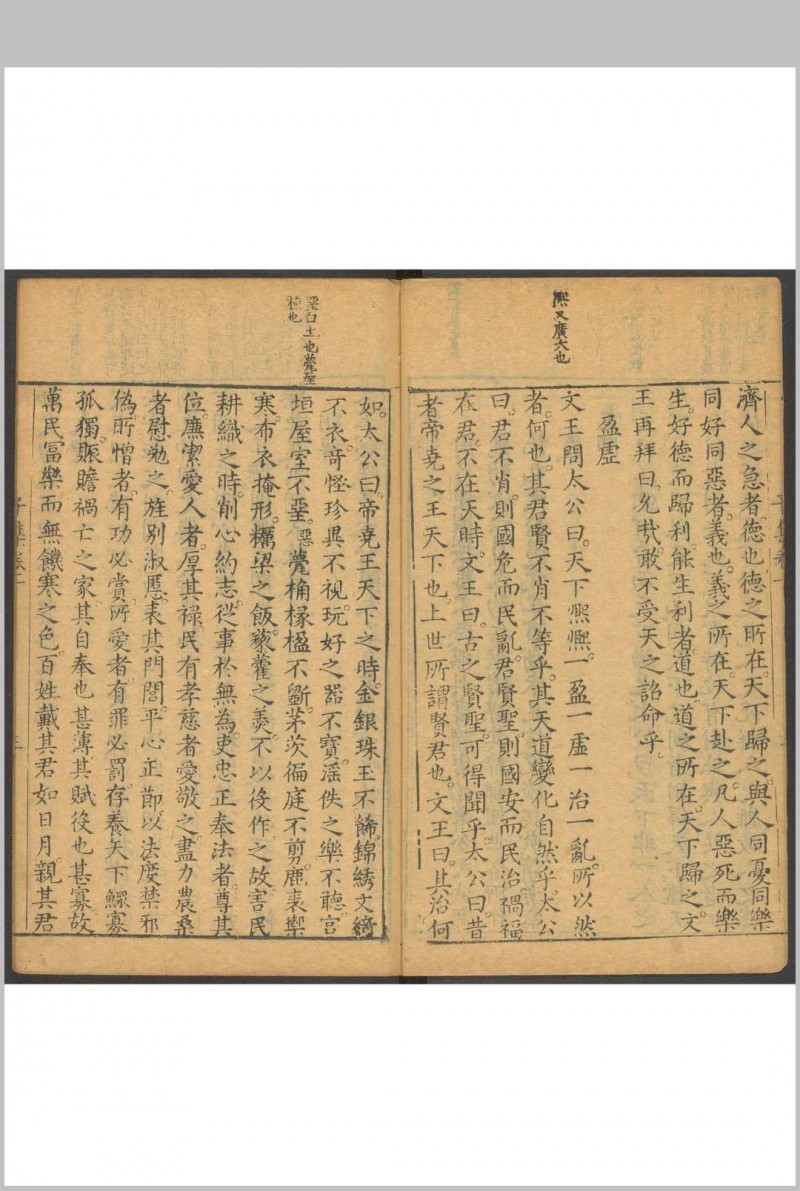 熈又廣大也
齊人之急者德也德之所在天下歸之與人同憂同樂
同好同惡者義也義之所在天下赴之凡人惡死而樂
生好德而歸利能生利者道也道之所在天下歸之文
王再拜曰允哉敢不受天之詔命乎
盈虛
文王問太公曰天下熈熈一盈一虛一治一亂所以然
者何也其君賢不肖不等乎其天道變化自然乎太公
曰君不肖則國危而民亂君賢聖則國安而民治禍福
在君不在天時文王曰古之賢聖可得聞乎太公曰昔
者帝堯之王天下也上世所謂賢君也文王曰其治何
堊白土也甍屋
棟也
如太公曰帝堯王天下之時金銀珠玉不餙錦綉文綺
不衣奇怪珍異不視玩好之噐不寳滛佚之樂不聽宫
垣屋室不堊惡甍桷椽楹不斵茅茨徧庭不剪鹿裘禦
寒布衣掩形糲梁之飯藜藿之羮不以後作之故害民
耕織之時削心約志從事於無為吏忠正奉法者尊其
位廉潔愛人者厚其禄民有孝慈者愛敬之盡力農桑
者慰勉之旌别淑慝表其門閭平心正節以法度禁邪
偽所憎者有功必賞所愛者有罪必罰存養天下鰥寡
孤獨賑贍禍亡之家其自奉也甚薄其賦役也甚寡故
萬民冨樂而無饑寒之色百姓戴其君如日月親其君